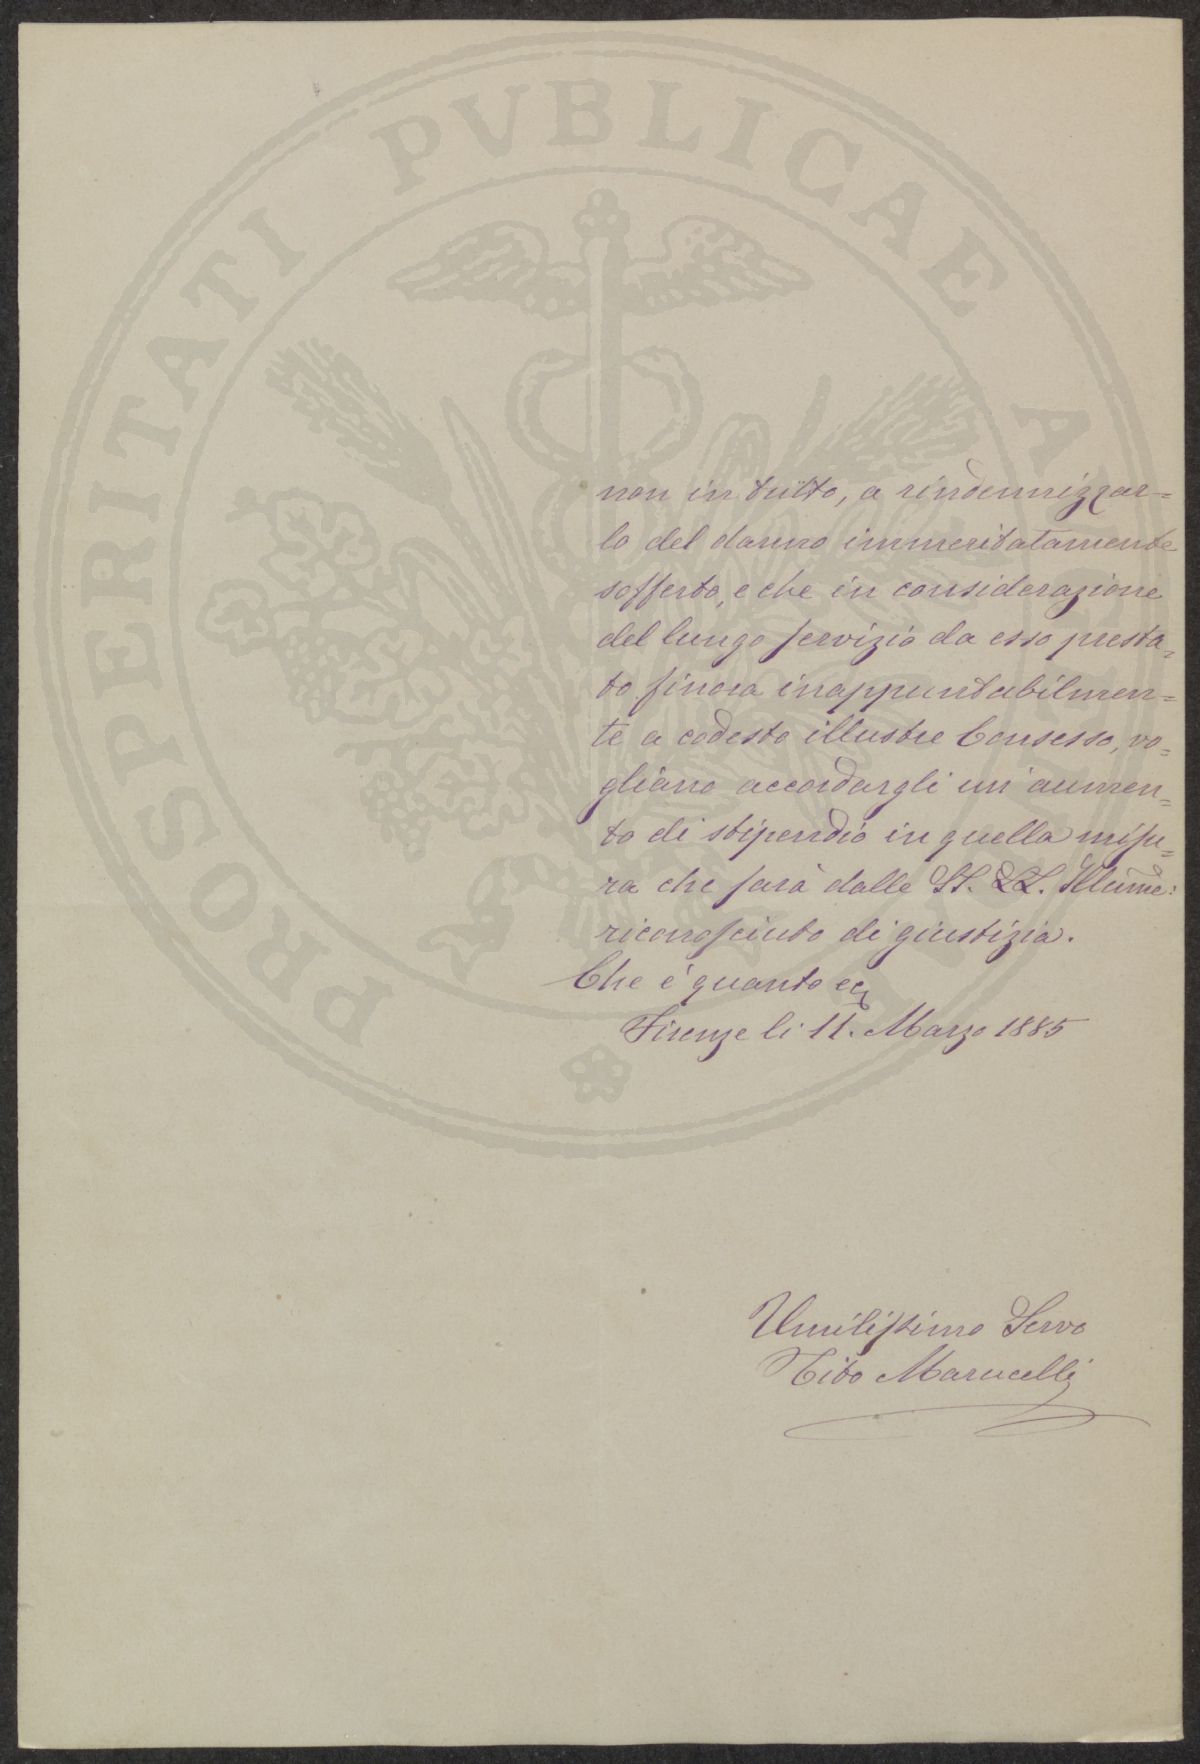 non in tutto, a rindennizzar=
lo del danno immeritatamente
sofferto, e che in considerazione
del lungo servizio da esso presta=
to finora inappuntabilmen=
te a codesto illustre Consesso, vo=
gliano accordargli un' aumen=
to di stipendio in quella misu=
ra che sarà dalle SS. LL. Illume:
riconosciuto di giustizia.
Che è quanto ec
Firenze li 11. Marzo 1885
Umilissimo Servo
Tito Marucelli
PROSPERITATI PVBLICAE